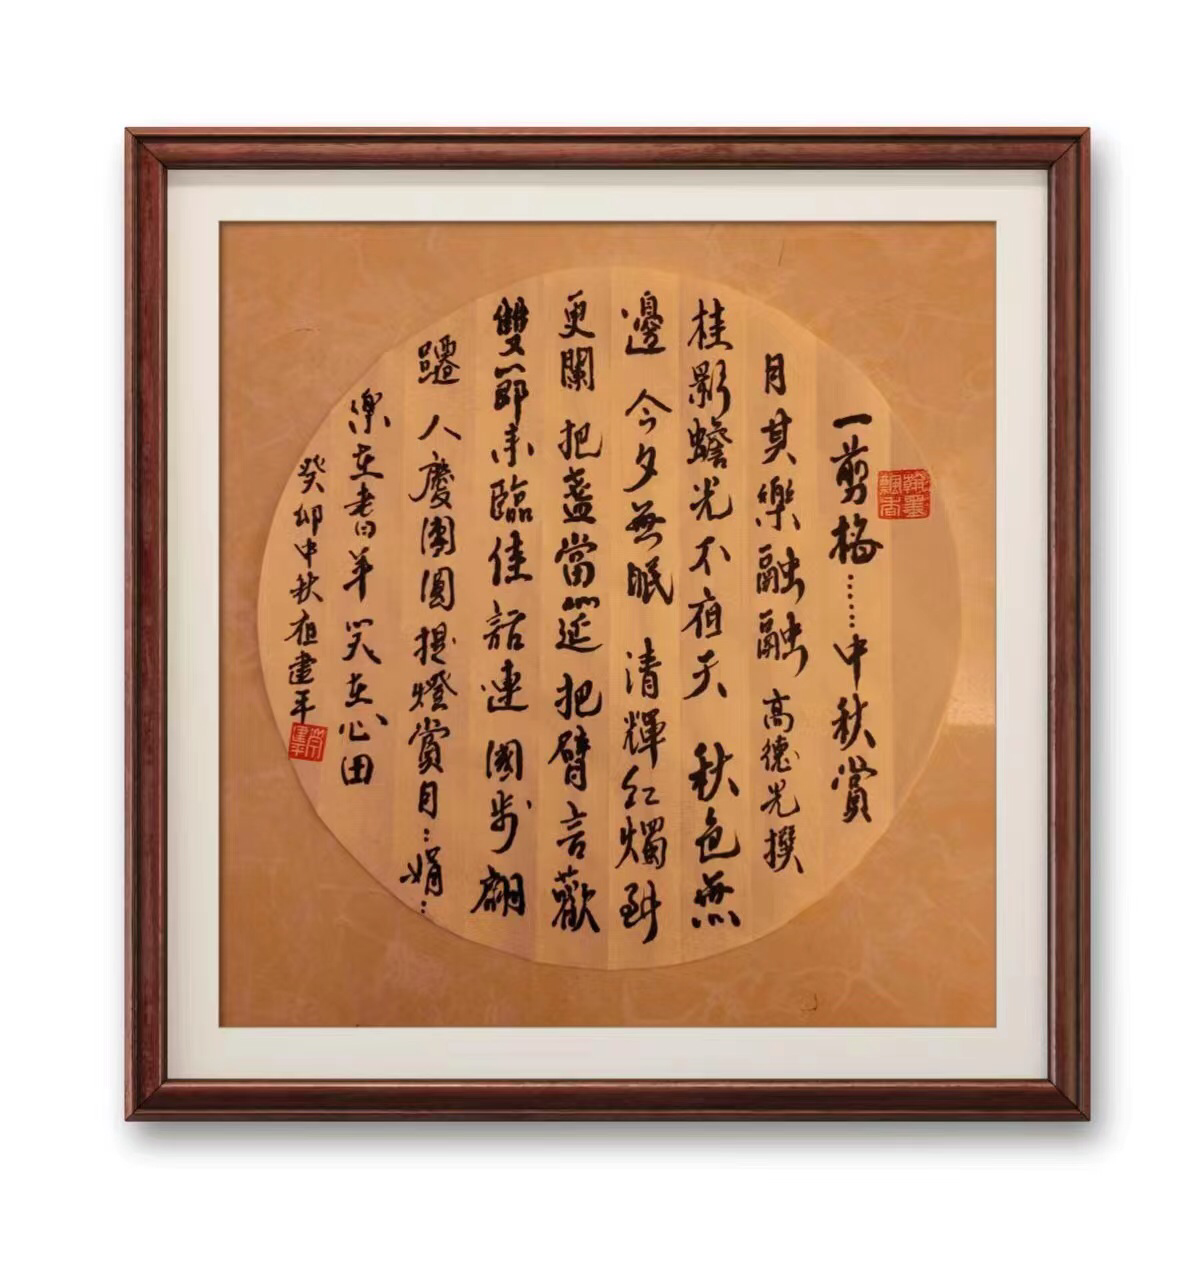 翰墨飄香
一剪梅……中秋賞
月其樂融融 高德光撰
桂影蟾光不夜天 秋色無
邊 今夕無眠 清輝紅燭到
更闌 把盞當筵 把臂言歡
雙節来臨佳話連 國步翩
躚 人慶團圓 提燈賞月:娟:
樂在耆年 笑在心田
癸卯中秋夜建平